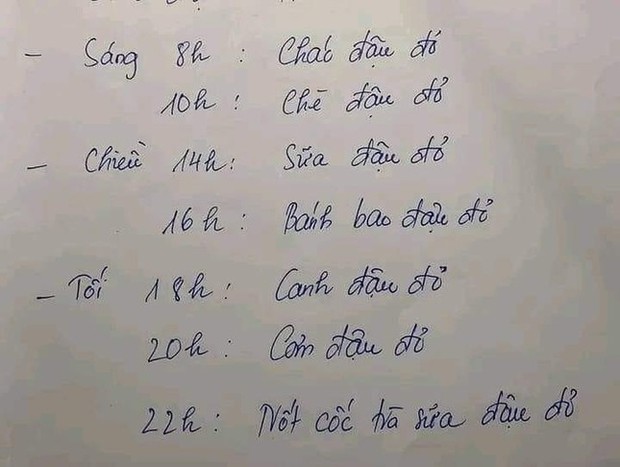 - Sáng 8h: Cháo đậu đỏ
10h: Chè đậu đỏ
- Chiều 14h: Sữa đậu đỏ
16h: Bánh bao đậu đỏ
- Tối 18h: Canh đậu đỏ
20h: Cơm đậu đỏ
22h: Nốt cốc trà sữa đậu đỏ